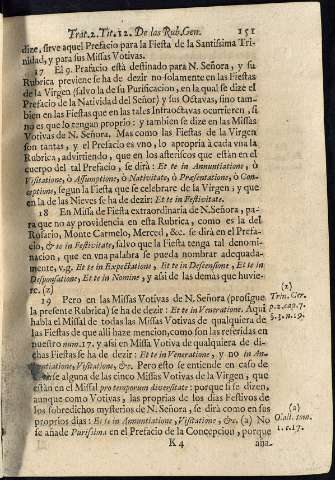 Trac. 2. Tit. 12. De las Rub. Gen. 151
dize, sirve aquel Prefacio para la Fiesta de la Santissima Tri-
nidad, y para sus Missas Votivas.
17 El 9. Prafacio està destinado para N. Señora, y su
Rubrica previene se ha de dezir no solamente en las Fiestas
de la Virgen (salvo la de su Purificacion, en la qual se dize el
Prefacio de la Natividad del Señor) y sus Octavas, sino tam-
bien en las Fiestas que en las tales Infraoctavas ocurrieren, si
no es que lo tengan proprio: y tambien se dize en las Missas
Votivas de N. Señora. Mas como las Fiestas de la Virgen
son tantas, y el Prefacio es vno, lo apropria à cada vna la
Rubrica, advirtiendo, que en los asteriscos que estàn en el
cuerpo del tal Prefacio, se dirà: Et te in Annuntiatione, ò
Visitatione, ò Assumptione, ò Nativitate, ò Præsentatione, ò Con-
ceptione, segun la Fiesta que se celebrare de la Virgen; y que
en la de las Nieves se ha de dezir: Et te in Festivitate.
18 En Missa de Fiesta extraordinaria de N. Señora, pa-
ra que no ay providencia en esta Rubrica, como es la del
Rosario, Monte Carmelo, Merced, &c. se dirà en el Prefa-
cio, & te in Festivitate, salvo que la Fiesta tenga tal denomi-
nacion, que en vna palabra se pueda nombrar adequada-
mente, v.g. Et te in Expectatione, Et te in Descensione, Et te in
Desponsatione, Et te in Nomine, y assi de las demàs que huvie-
re. (2)
19 Pero en las Missas Votivas de N. Señora (prosigue
la presente Rubrica) se ha de dezir: Et te in Veneratione. Aqui
habla el Missal de todas las Missas Votivas de qualquiera de
las Fiestas de que allì haze mencion, como son las referidas en
nuestro num. 17. y assi en Missa Votiva de qualquiera de di-
chas Fiestas se ha de dezir: Et te in Veneratione, y no in An-
nuntiatione, Visitatione, &c. Pero esto se entiende en caso de
dezirse alguna de las cinco Missas Votivas de la Virgen, que
estàn en el Missal pro temporum diversitate: porque si se dizen,
aunque como Votivas, las proprias de los dias Festivos de
los sobredichos mysterios de N. Señora, se dirà como en sus
proprios dias: Et te in Annuntiatione, Visitatione, &c. (2) No
se añade Purissima en el Prefacio de la Concepcion, porque
K 4 aña-
(1)
Trin. Ger.
p. 2. cap. 7.
§. 3. n. 19.
(2)
Olall. tom.
1. n. 17.